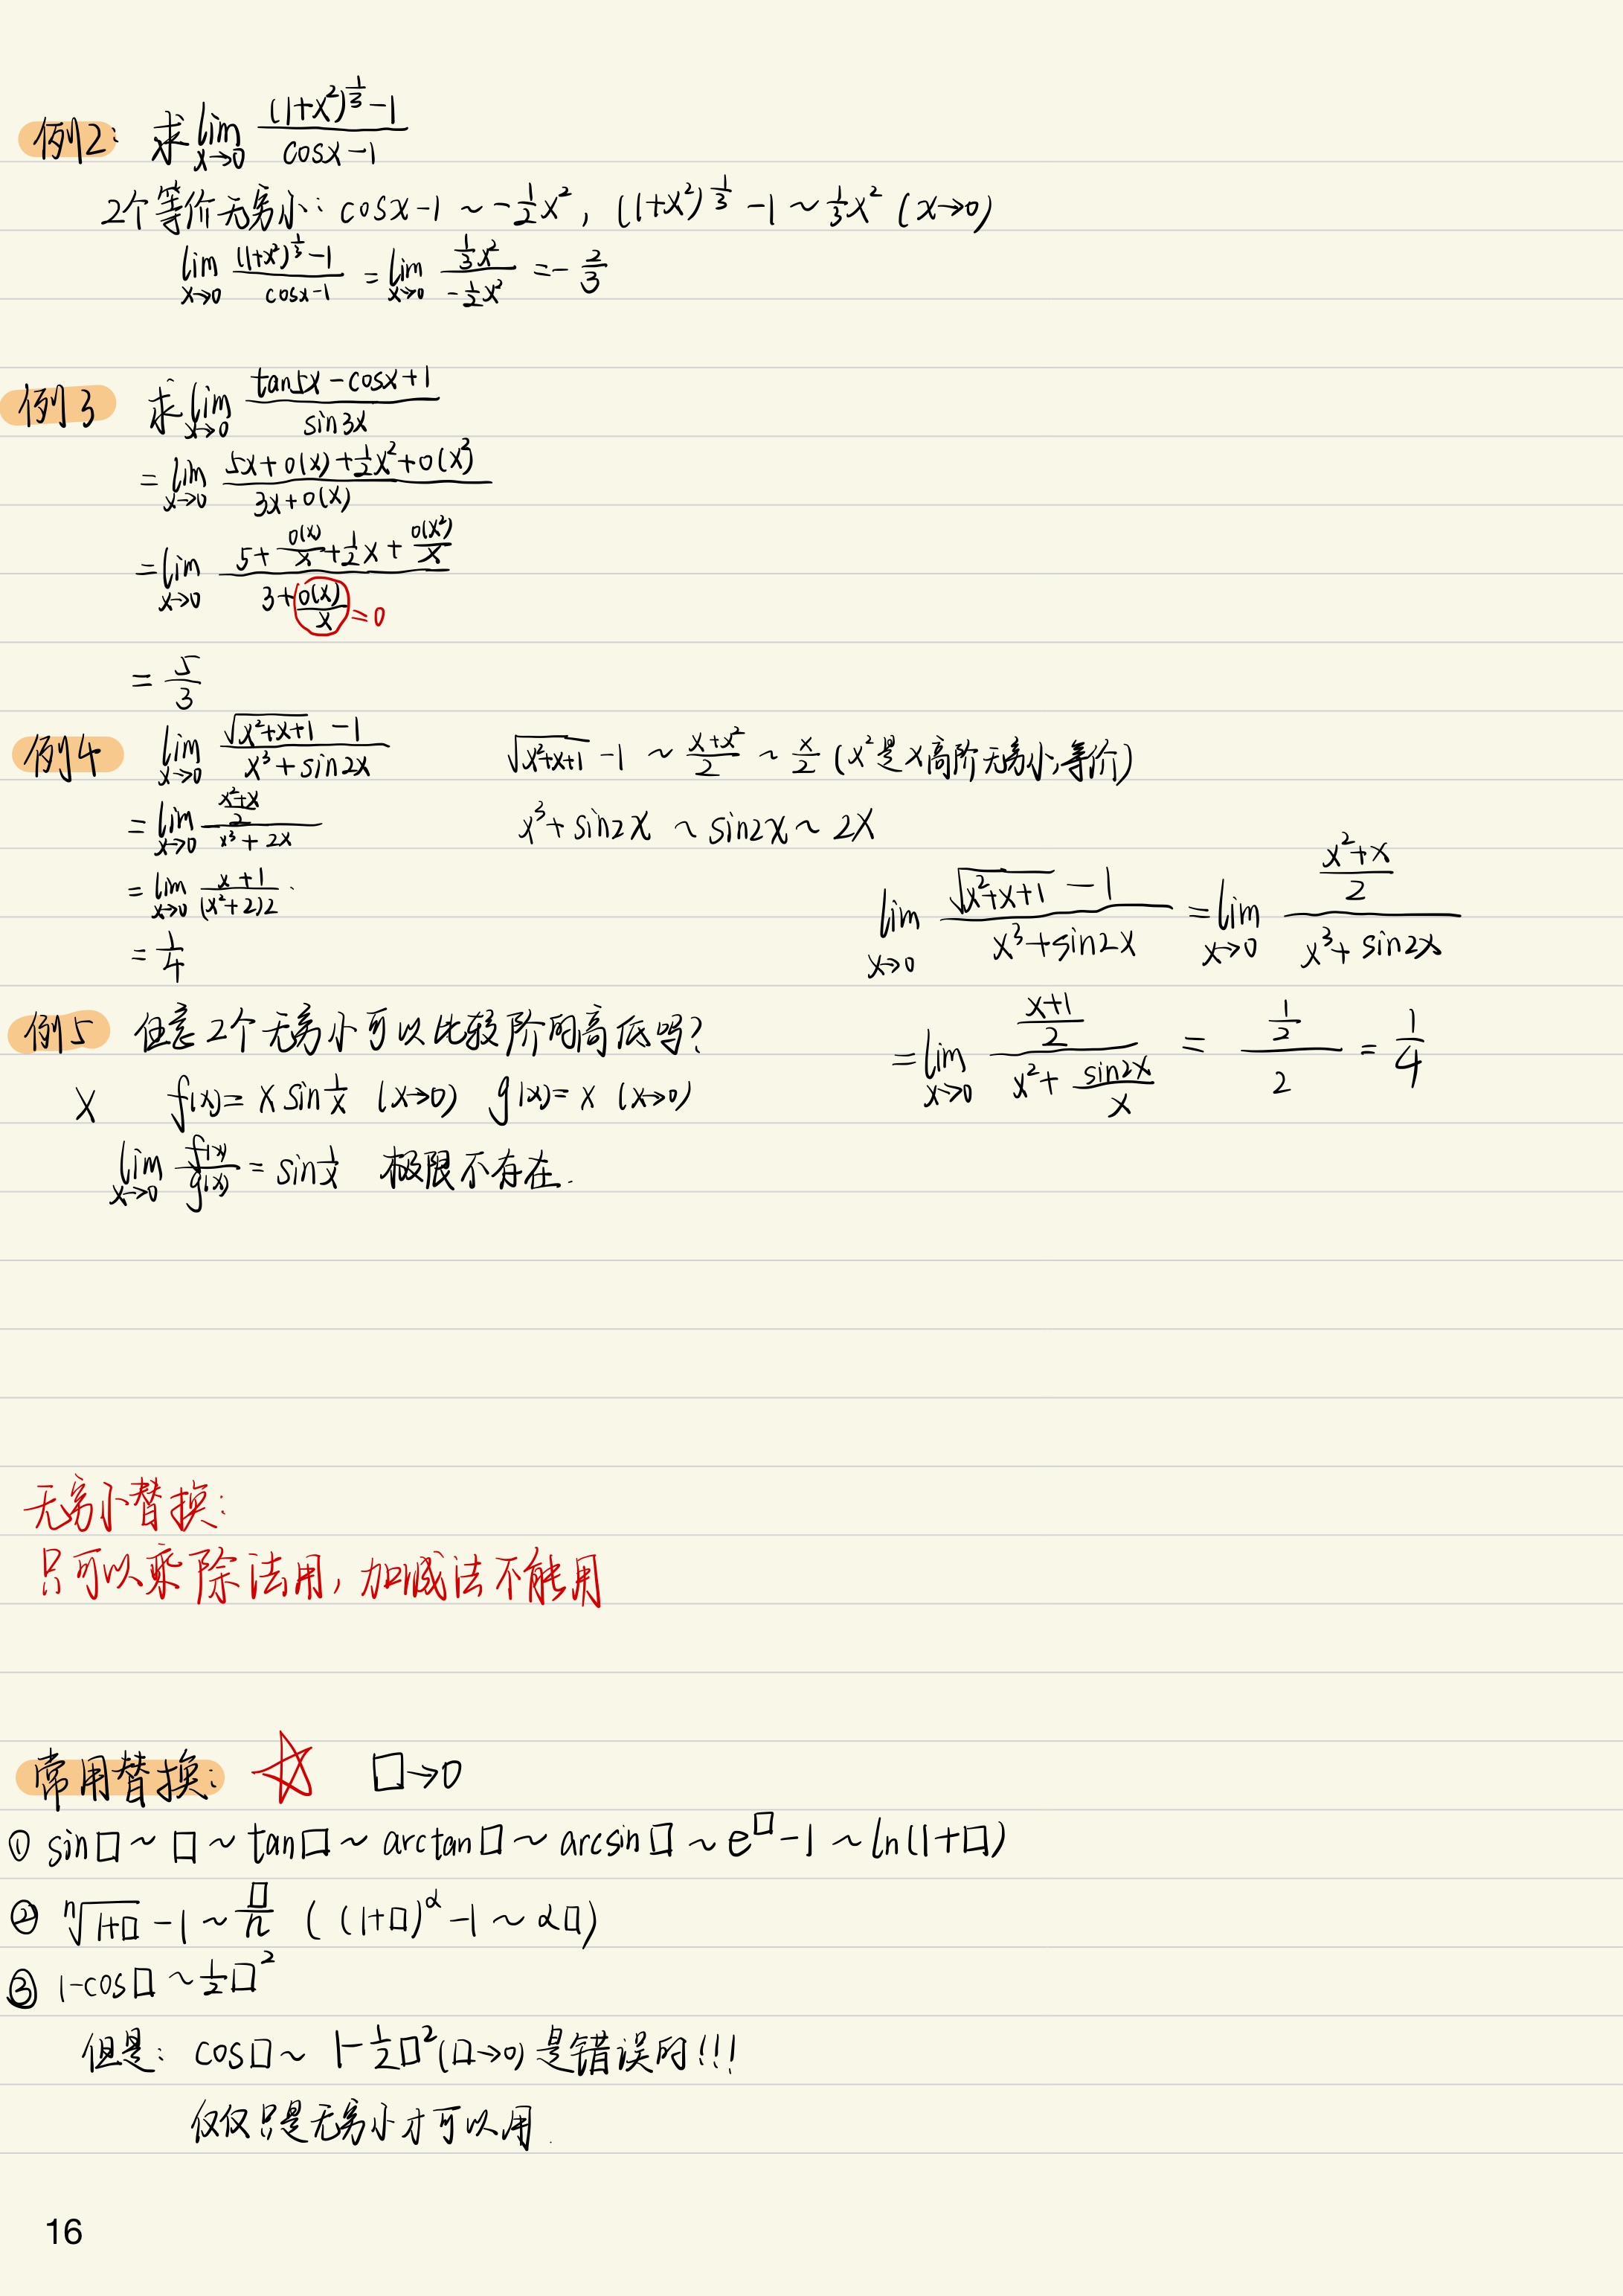 例2: 求 lim_{x→0} ((1+x²)^{1/3} - 1)/(cosx - 1)
2个等价无穷小: cosx-1 ~ -1/2 x², (1+x²)^{1/3} - 1 ~ 1/3 x² (x→0)
lim_{x→0} ((1+x²)^{1/3} - 1)/(cosx-1) = lim_{x→0} (1/3 x²)/(-1/2 x²) = -2/3
例3 求 lim_{x→0} (tan5x - cosx + 1)/(sin3x)
= lim_{x→0} (5x + o(x) + 1/2 x² + o(x²))/(3x + o(x))
= lim_{x→0} (5 + o(x)/x + 1/2 x + o(x²)/x)/(3 + o(x)/x) =0
= 5/3
例4 lim_{x→0} (√(x²+x+1) - 1)/(x³ + sin2x)
= lim_{x→0} ((x²+x)/2)/(x³ + 2x)
= lim_{x→0} (x+1)/((x²+2)2)
= 1/4
√(x²+x+1) - 1 ~ (x+x²)/2 ~ x/2 (x²是x高阶无穷小,等价)
x³ + sin2x ~ sin2x ~ 2x
lim_{x→0} (√(x²+x+1) - 1)/(x³+sin2x) = lim_{x→0} ((x²+x)/2)/(x³+sin2x)
= lim_{x→0} ((x+1)/2)/(x² + sin2x/x) = (1/2)/2 = 1/4
例5 任意2个无穷小可以比较阶的高低吗?
X f(x)= x sin 1/x (x→0) g(x)= x (x→0)
lim_{x→0} f(x)/g(x) = sin 1/x 极限不存在.
无穷小替换:
只可以乘除法用, 加减法不能用
常用替换: ☆ □→0
① sin□ ~ □ ~ tan□ ~ arctan□ ~ arcsin□ ~ e^□ - 1 ~ ln(1+□)
② ⁿ√(1+□) - 1 ~ □/n ((1+□)^α - 1 ~ α□)
③ 1-cos□ ~ 1/2 □²
但是: cos□ ~ 1-1/2 □² (□→0) 是错误的!!!
仅仅只是无穷小才可以用.
16